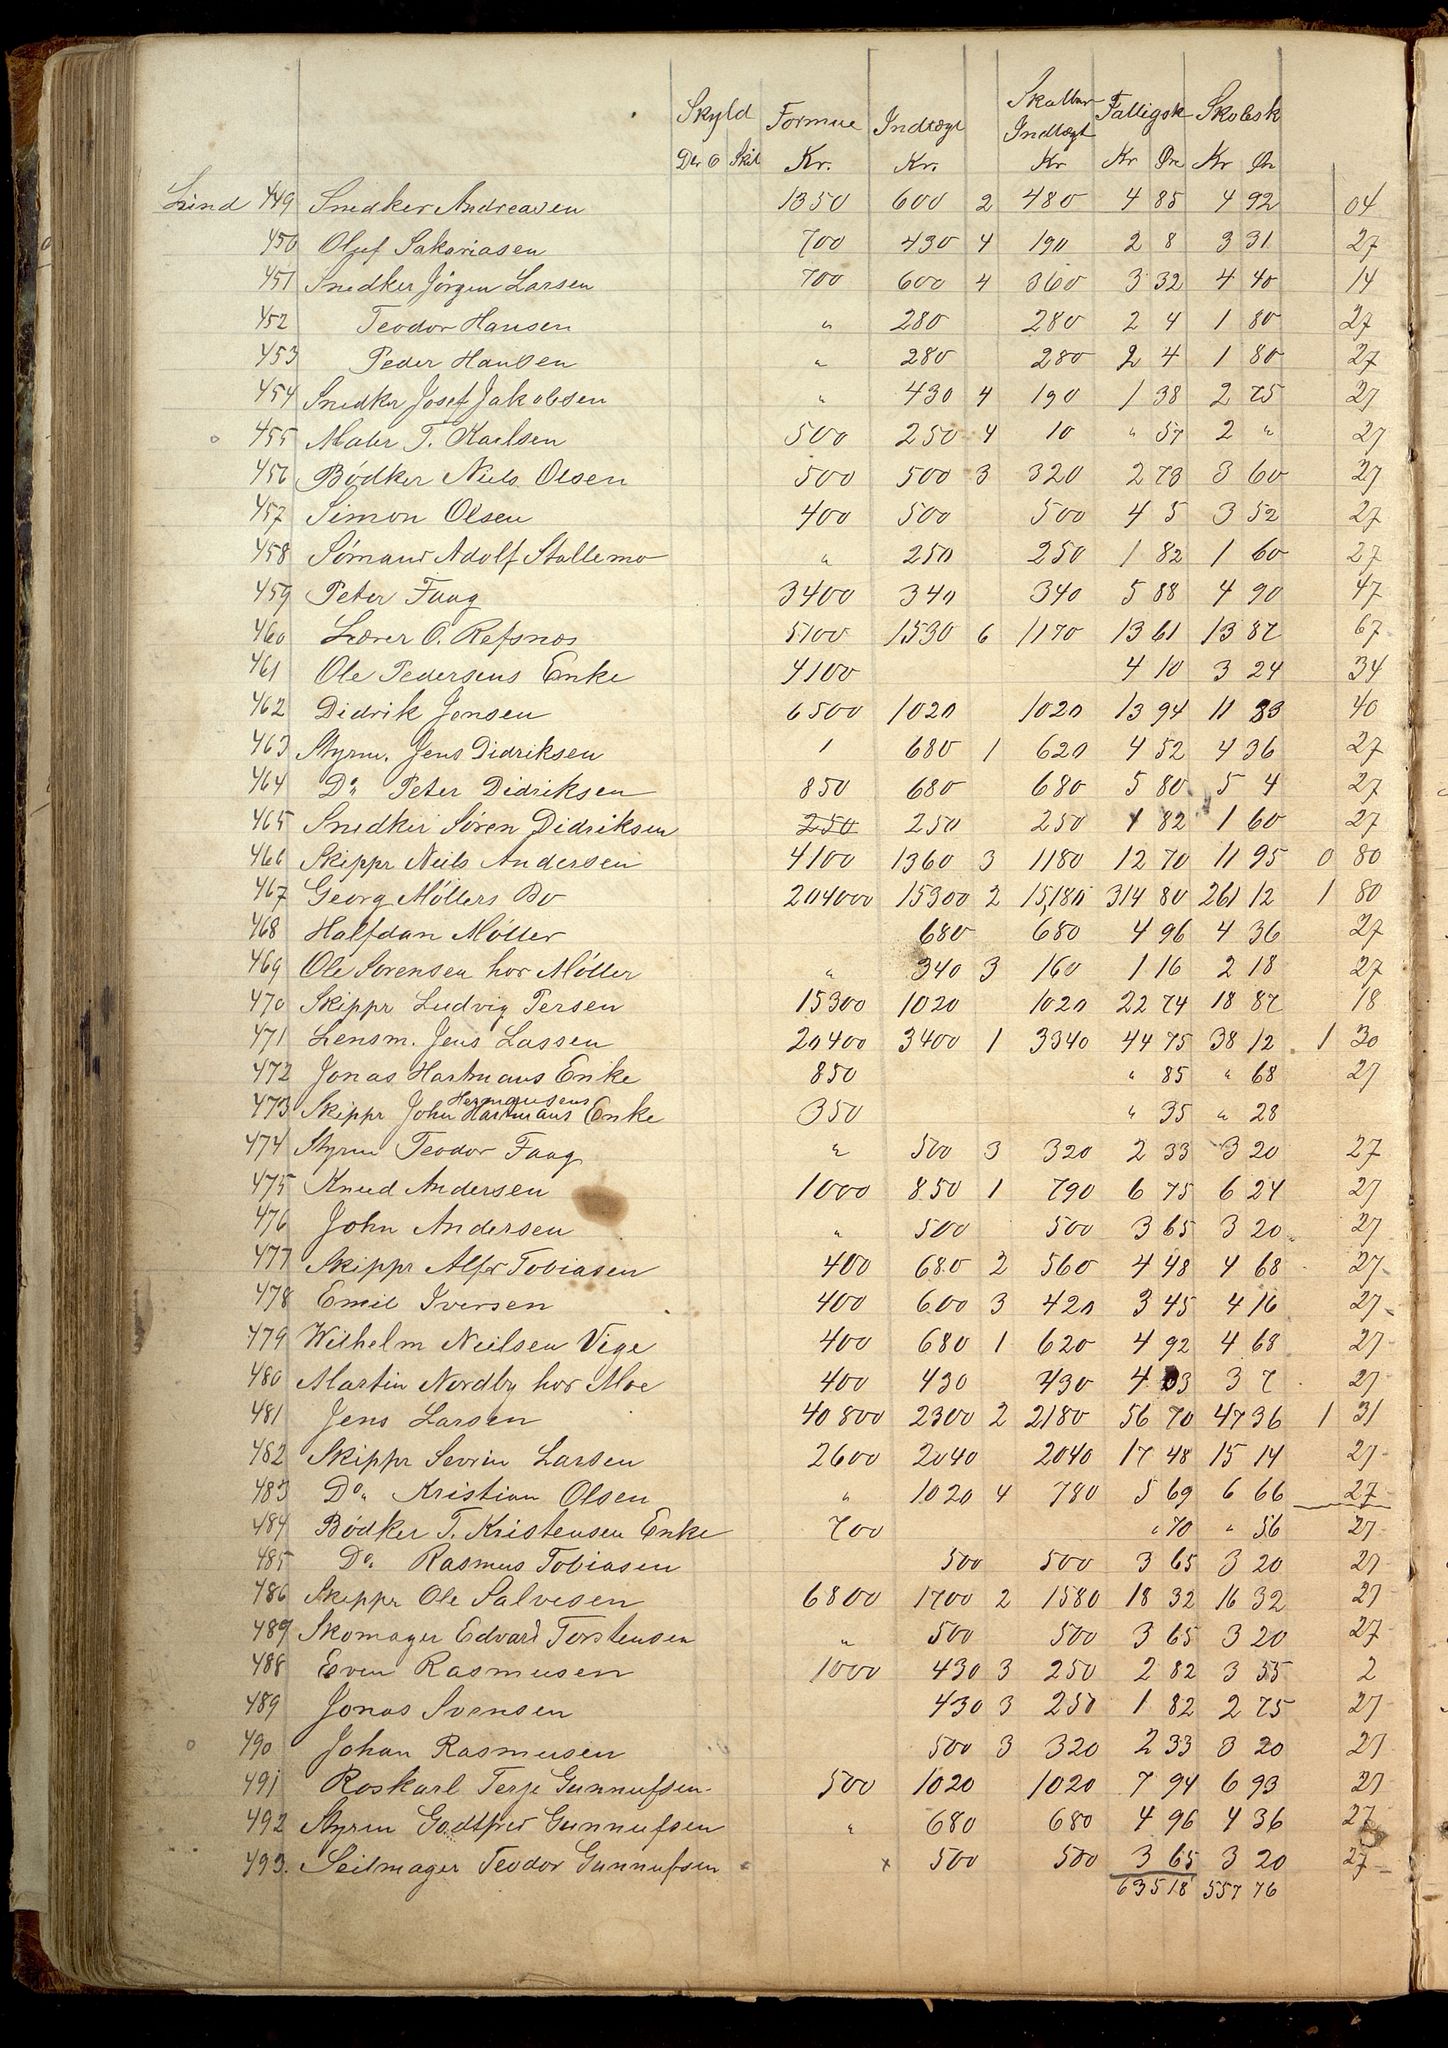 Skyld Formue Indtægt Skatbar Indtægt Fattigsk Skolesk
Dlr O Skil Kr. Kr. Kr Kr Øre Kr Øre
Lund 449 Snedker Andreasen 1350 600 2 480 4 85 4 92 04
450 Oluf Sakariasen 700 430 4 190 2 8 3 31 27
451 Snedker Jörgen Larsen 700 600 4 360 3 32 4 40 14
452 Teodor Hansen " 280 280 2 4 1 80 27
453 Peder Hansen " 280 280 2 4 1 80 27
454 Snedkr Josef Jakobsen " 430 4 190 1 38 2 75 27
455 Maler T. Karlsen 500 250 4 10 " 57 2 " 27
456 Bödker Niels Olsen 500 500 3 320 2 73 3 60 27
457 Simon Olsen 400 500 500 4 5 3 52 27
458 Sömand Adolf Stallemo " 250 250 1 82 1 60 27
459 Peter Faag 3400 340 340 5 88 4 90 47
460 Lærer O. Refsnæs 5100 1530 6 1170 13 61 13 87 67
461 Ole Pedersens Enke 4100 4 10 3 24 34
462 Didrik Jensen 6500 1020 1020 13 94 11 83 40
463 Styrm. Jens Didriksen 1 680 1 620 4 52 4 36 27
464 Do. Peter Didriksen 850 680 680 5 80 5 4 27
465 Snedker Sören Didriksen 250 250 250 1 82 1 60 27
466 Skippr Neils Andersen 4100 1360 3 1180 12 70 11 95 0 80
467 Georg Möllers Bo 204000 15300 2 15,180 314 80 261 12 1 80
468 Halfdan Möller 680 680 4 96 4 36 27
469 Ole Sorensen hos Möller " 340 3 160 1 16 2 18 27
470 Skippr Ludvig Persen 15300 1020 1020 22 74 18 87 18
471 Lensm. Jens Lassen 20400 3400 1 3340 44 75 38 12 1 30
472 Jonas Hartmans Enke 850 " 85 " 68 27
Hermansens
473 Skippr John Hartmans Enke 350 " 35 " 28
474 Styrm Teodor Faag " 500 3 320 2 33 3 20 27
475 Knud Andersen 1000 850 1 790 6 75 6 24 27
476 John Andersen " 500 500 3 65 3 20 27
477 Skippr Alfr Tobiasen 400 680 2 560 4 48 4 68 27
478 Emil Iversen 400 600 3 420 3 45 4 16 27
479 Wilhelm Neilsen Vige 400 680 1 620 4 92 4 68 27
480 Martin Nordby hos Moe 400 430 430 4 03 3 7 27
481 Jens Larsen 40800 2300 2 2180 56 70 47 36 1 31
482 Skippr Sevrin Larsen 2600 2040 2040 17 48 15 14 27
483 Do. Kristian Olsen " 1020 4 780 5 69 6 66 27
484 Bödker T. Kristensen Enke 700 " 70 " 56 27
485 Do. Rasmus Tobiasen 500 500 3 65 3 20 27
486 Skippr Ole Salvesen 6800 1700 2 1580 18 32 16 32 27
489 Skomager Edvard Torstensen " 500 500 3 65 3 20 27
488 Even Rasmusen 1000 430 3 250 2 82 3 55 2
489 Jonas Svensen 430 3 250 1 82 2 75 27
490 Johan Rasmusen 500 3 320 2 33 3 20 27
491 Roskarl Terje Gunnufsen 500 1020 1020 7 94 6 93 27
492 Styrm Godtfred Gunnufsen " 680 680 4 96 4 36 27
493. Seilmager Teodor Gunnufsen " x 500 500 3 65 3 20 27
635 18 557 76